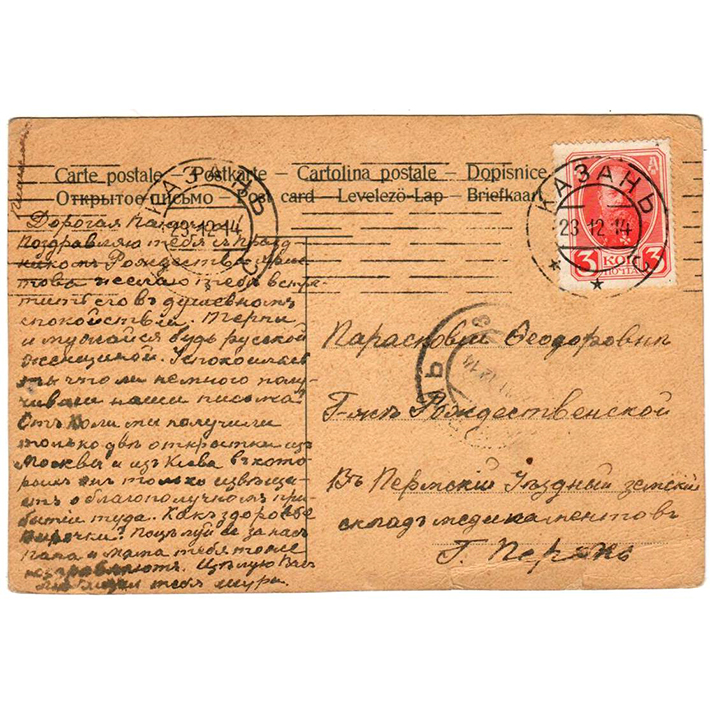 Carte postale – Postkarte – Cartolina postale – Dopisnice
Открытое письмо – Post card – Levelezö-Lap – Briefkaart
КАЗАНЬ
23·12·14
КАЗАНЬ
23 12 14
3 КОП 3
Дорогая
поздравляю тебя съ празд
никомъ Рождества Хрис
това желаю тебѣ встрѣ
тить его въ душевномъ
спокойствіи. Терпи
и мужайся будь русской
женщиной. Успокоилась
ты что ли немного полу
чивши наши письма?
Отъ Коли мы получили
только двѣ открытки изъ
Москвы и изъ Кіева въ кото
рыхъ онъ только извѣща
етъ о благополучномъ при
бытіи туда. Какъ здоровье
Папа и мама тебя тоже
поздравляютъ. Цѣлую Васъ
тебя Шура.
Парасковіи Ѳеодоровнѣ
Г-жѣ Рождественской
Въ Пермскій Уѣздный земскій
складъ медикаментовъ
Г. Пермь